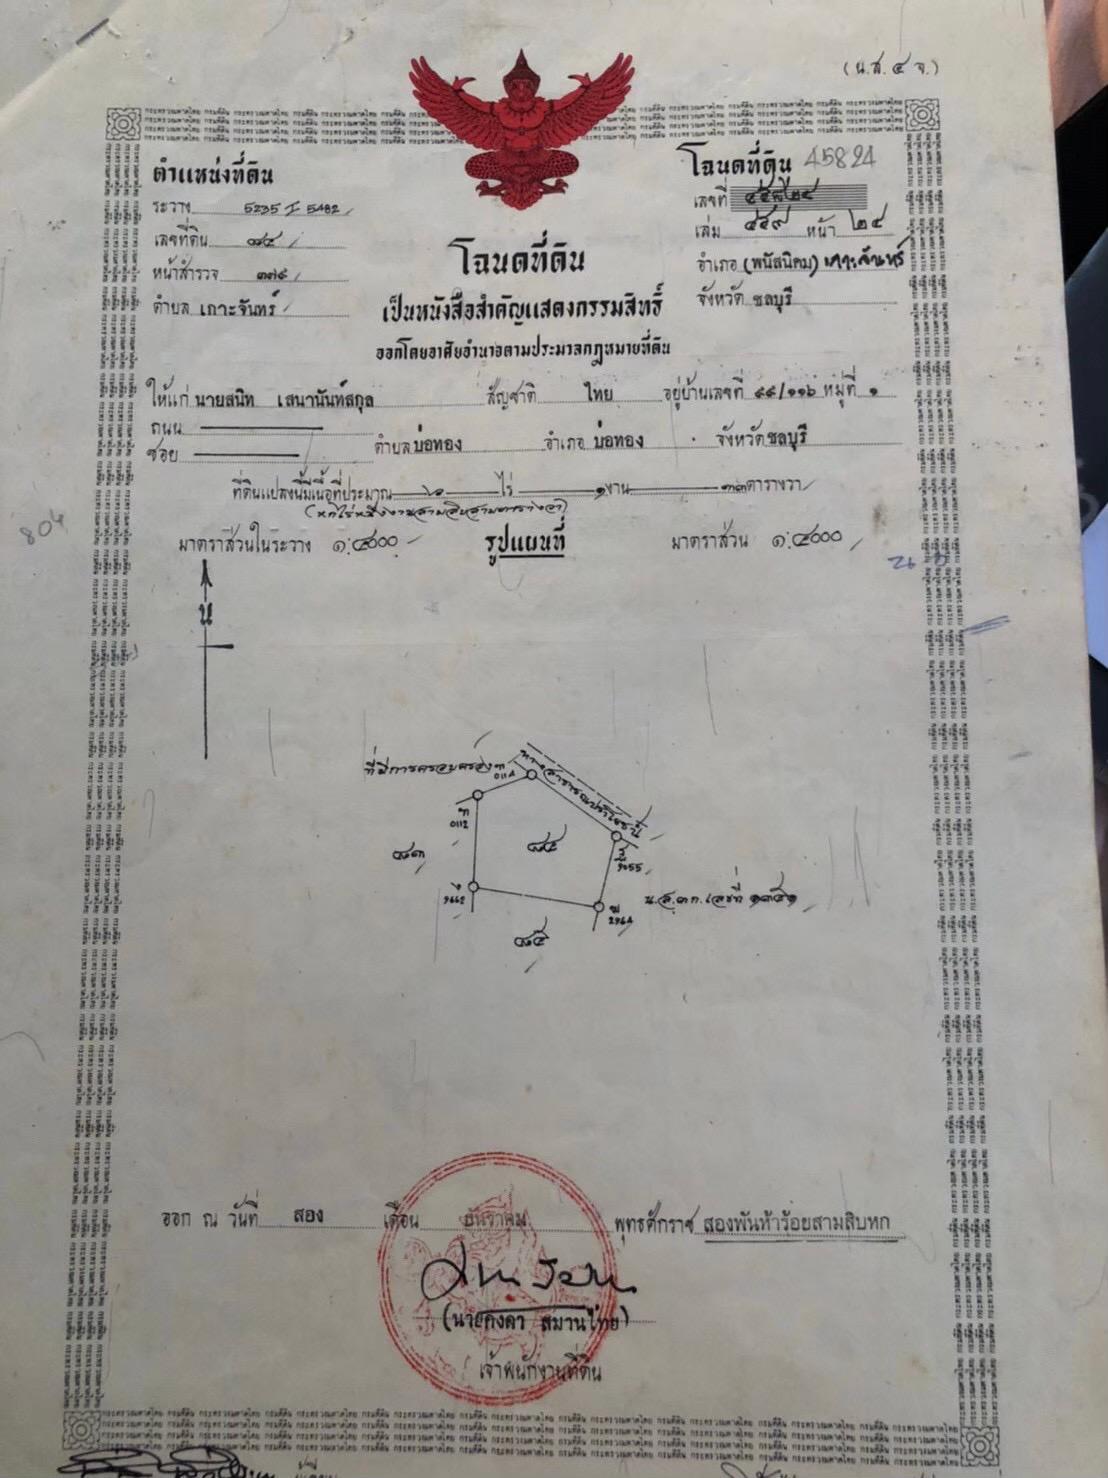 (น.ส.๔ จ.)
ตำแหน่งที่ดิน
ระวาง 5235 I 5482
เลขที่ดิน ๘๔
หน้าสำรวจ ๓๗๙
ตำบล เกาะจันทร์
โฉนดที่ดิน 45824
เลขที่ ๔๕๘๒๔
เล่ม ๔๕๙ หน้า ๒๔
อำเภอ (พนัสนิคม) เกาะจันทร์
จังหวัด ชลบุรี
โฉนดที่ดิน
เป็นหนังสือสำคัญแสดงกรรมสิทธิ์
ออกโดยอาศัยอำนาจตามประมวลกฎหมายที่ดิน
ให้แก่ นายสนิท เสนานันท์สกุล สัญชาติ ไทย อยู่บ้านเลขที่ ๙๙/๑๑๖ หมู่ที่ ๑
ถนน
ซอย ตำบล บ่อทอง อำเภอ บ่อทอง จังหวัด ชลบุรี
ที่ดินแปลงนี้มีเนื้อที่ประมาณ ๖ ไร่ ๑ งาน ๓๓ ตารางวา
(หกไร่หนึ่งงานสามสิบสามตารางวา)
มาตราส่วนในระวาง ๑:๔๐๐๐ รูปแผนที่ มาตราส่วน ๑:๔๐๐๐
804
น
ที่มีการครอบครอง
0114
ทางสาธารณประโยชน์
0112
๘๓
๘๔
9055
9662
น.ส.๓ก.เลขที่ ๑๓๕๑
2964
๘๕
ออก ณ วันที่ สอง เดือน ธันวาคม พุทธศักราช สองพันห้าร้อยสามสิบหก
(นายคงคา สมานไทย)
เจ้าพนักงานที่ดิน